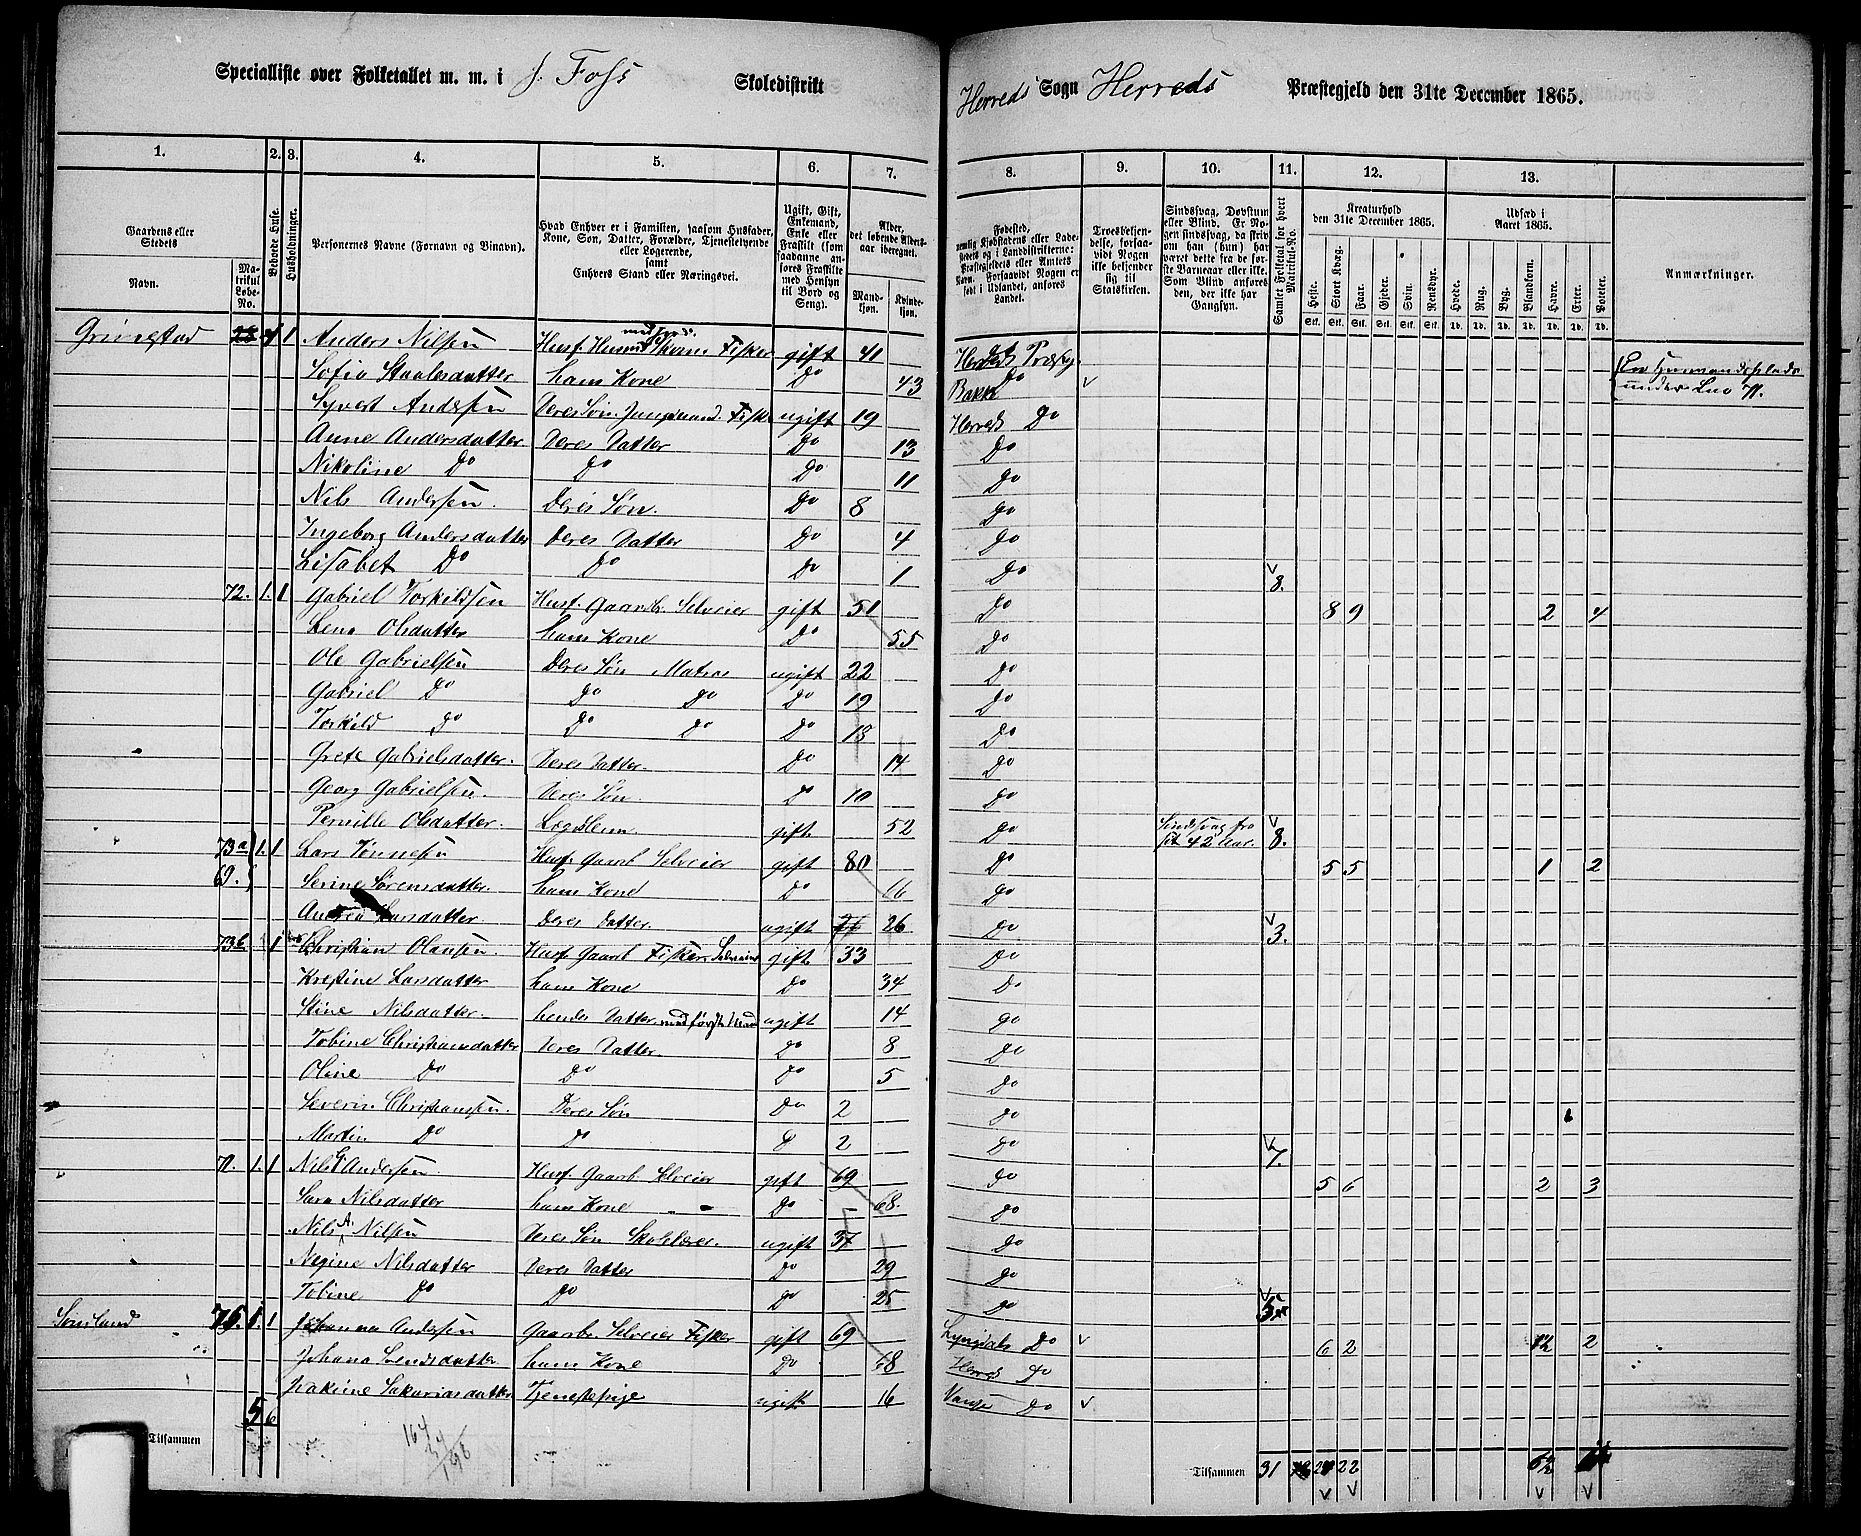 Specialliste over Folketallet m. m. i J. Foss Skoledistrikt Herreds Sogn Herreds Præstegjeld den 31te December 1865.
1. 2. 3. 4. 5. 6. 7. 8. 9. 10. 11. 12. 13.
Gaardens eller Stedets Navn. Matrikul Løbe-No. Beboede Huse. Husholdninger. Personernes Navne (Fornavn og Binavn). Hvad Enhver er i Familien, saasom Husfader, Kone, Søn, Datter, Forældre, Tjenestetyende eller Logerende, samt Enhvers Stand eller Næringsvei. Ugift, Gift, Enkemand, Enke eller Fraskilt (som saadanne anføres Fraskilte med Hensyn til Bord og Seng). Alder, det løbende Aldersaar iberegnet. Mandkjøn. Kvindekjøn. Fødested, nemlig Kjøbstadens eller Ladestedets og i Landdistrikterne: Præstegjeldets eller Amtets Navn. Forsaavidt Nogen er født i Udlandet, anføres Landet. Troesbekjendelse, forsaavidt Nogen ikke bekjender sig til Statskirken. Sindssvag, Døvstum eller Blind. Er Nogen sindssvag, da skrives om han (hun) har været dette fra de første Barneaar eller ikke. Som Blind anføres den, der ikke har Gangsyn. Samlet Folketal for hvert Matrikul-No. Kreaturhold den 31te December 1865. Heste. Stort Kvæg. Faar. Gjeder. Svin. Rensdyr. Udsæd i Aaret 1865. Hvede. Rug. Byg. Blandkorn. Havre. Erter. Poteter. Anmærkninger.
Grimestad 1 Anders Nilsen Husf. Husmd med Jord Fisker gift 41 Herreds Præstg. En Husmandsplads
Sofia Staalesdatter hans Kone Do 43 Bakke Do v under Lno 71.
Syvert Andersen Deres Søn Fisker ugift 19 Herreds Do
Anne Andersdatter Deres Datter Do 13 Do
Nikoline Do Do Do 11 Do
Nils Andersen. Deres Søn. Do 8 Do
Ingeborg Andersdatter Deres Datter Do 4 Do
Lisabet Do Do Do 1 Do 8.
72. 1. 1 Gabriel Torkildsen Husf. Gaardb. Selveier gift 51 Do 8 9 2 4
Lena Olsdatter hans Kone Do 55 Do
Ole Gabrielsen Deres Søn Matros ugift 22 Do
Gabriel Do Do Do Do 19 Do
Torkild Do Do Do Do 18 Do
Grete Gabrielsdatter. Deres Datter. Do 14 Do
Georg Gabrielsen. Deres Søn. Do 10 Do
Pernille Olsdatter. Lægdslem gift 52 Do Sindsvag fra sit 42 Aar. 8.
73a 1. 1 Lars Tønnesen Husf. Gaardb. Selveier gift 80 Do 5 5 1 2
69. Serine Sørensdatter. hans Kone Do 66 Do
Andrea Larsdatter Deres Datter. ugift 26 Do 3.
73b 1 Christian Olausen. Husf. Gaardb. Fisker Selveier gift 33 Do
Kristine Larsdatter hans Kone Do 34 Do
Stine Nilsdatter. hendes Datter med første Mand ugift 14 Do
Tobine Christiansdatter Deres Datter. Do 8 Do
Oline Do Do Do 5 Do
Severin Christiansen. Deres Søn Do 2 Do
Martin Do Do Do 2 Do 7.
71. 1. 1 Nils G Andersen. Husf. Gaardb. Selveier gift 69 Do 5 6 2 3
Sara Nilsdatter hans Kone Do 68. Do
Nils A. Nilsen Deres Søn Skolelærer. ugift 37 Do
Regine Nilsdatter Deres Datter Do 29 Do
Tobine Do Do Do 25 Do 5
76. 1. 1 Johannes Andersen Gaardb. Selveier Fisker gift 69 Lyngdals Do v 6 2 1½ 2
Johana Svendsdatter hans Kone Do 68 Herreds Do
Sakariasdatter Tjenestepige ugift 16 Vanse Do v
5 6
Tilsammen 164 34 Tilsammen 31 22 6½